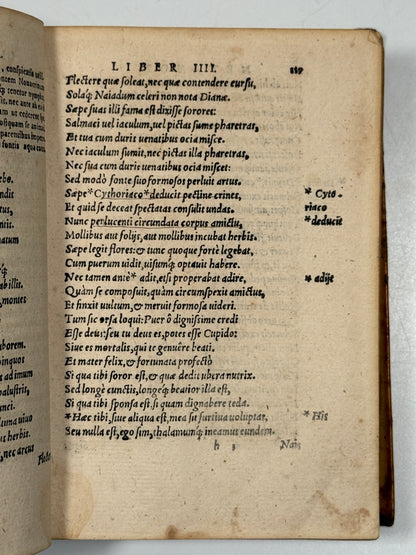 conspicitis
LIBER IIII. 119
Flectere quæ soleat, nec quæ contendere cursu,
Solaq́; Naiadum celeri non nota Dianæ.
Sæpe suas illi fama est dixisse sorores:
Salmaci uel iaculum, uel pictas sume pharetras,
Et tua cum duris uenatibus ocia misce.
Nec iaculum sumit, nec pictas illa pharetras,
Nec sua cum duris uenatibus ocia miscet:
Sed modò fonte suo formosos perluit artus.
Sæpe *Cythoriaco *deducit pectine crines, * Cyto
Et quid se deceat spectatas consulit undas. riaco
Nunc perlucenti circundata corpus amictu, * deducit
Mollibus aut folijs, aut mollibus incubat herbis.
Sæpe legit flores: & tunc quoque fortè legebat,
Cum puerum uidit, uisumq́; optauit habere.
Nec tamen antè* adit, etsi properabat adire, * adijt
Quàm se composuit, quàm circumspexit amictus,
Et finxit uultum, & meruit formosa uideri.
Tum sic orsa loqui: Puer ô dignissime credi
Esse deus: seu tu deus es, potes esse Cupido:
Siue es mortalis, qui te genuêre beati.
Et mater felix, & fortunata profectò
Si qua tibi soror est, & quæ dedit ubera nutrix.
Sed longè cunctis, longeq́; beatior illa est,
Si qua tibi sponsa est, si quam dignabere teda.
*Hæc tibi, siue aliqua est, mea sit furtiua voluptas, * His
Seu nulla est, ego sim, thalamumq́; ineamus eundem.
h 3 Nais